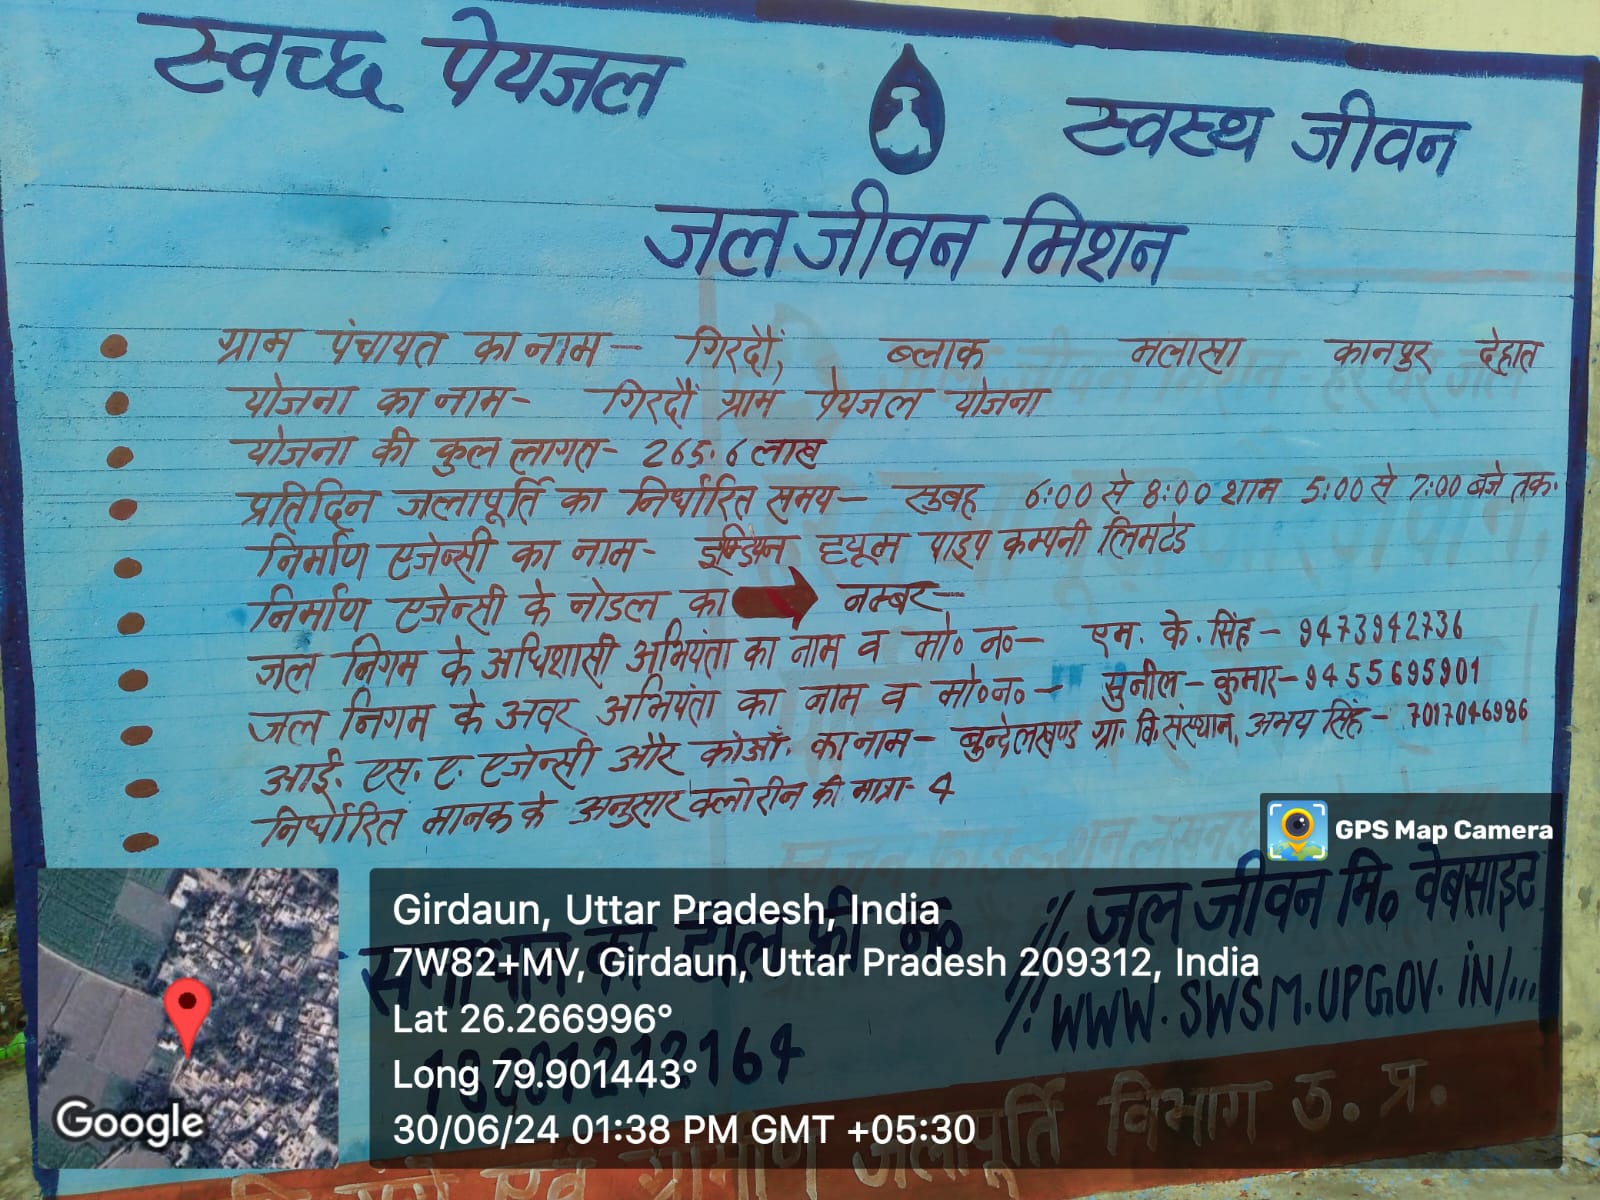 स्वच्छ पेयजल
स्वस्थ जीवन
जल जीवन मिशन
ग्राम पंचायत का नाम – गिरदौं, ब्लाक मलासा कानपुर देहात
योजना का नाम – गिरदौं ग्राम पेयजल योजना
योजना की कुल लागत - 265.6 लाख
प्रतिदिन जलापूर्ति का निर्धारित समय – सुबह 6:00 से 8:00 शाम 5:00 से 7:00 बजे तक.
निर्माण एजेन्सी का नाम - इण्डियन ह्यूम पाइप कम्पनी लिमटेड
निर्माण एजेन्सी के नोडल का नम्बर –
जल निगम के अधिशासी अभियंता का नाम व मो० न० – एम. के. सिंह – 9473942736
जल निगम के अवर अभियंता का नाम व मो० न० – सुनील – कुमार – 9455695901
आई. एस. ए. एजेन्सी और कोऑ. का नाम – बुन्देलखण्ड ग्रा. वि. संस्थान, अभय सिंह – 7017046986
निर्धारित मानक के अनुसार क्लोरीन की मात्रा - 4
समाधान का टोल फ्री न०
// जल जीवन मि० वेबसाइट
//WWW.SWSM.UPGOV.IN/...
एवं ग्रामीण जलापूर्ति विभाग उ. प्र.
GPS Map Camera
Girdaun, Uttar Pradesh, India
7W82+MV, Girdaun, Uttar Pradesh 209312, India
Lat 26.266996°
Long 79.901443°
30/06/24 01:38 PM GMT +05:30
Google